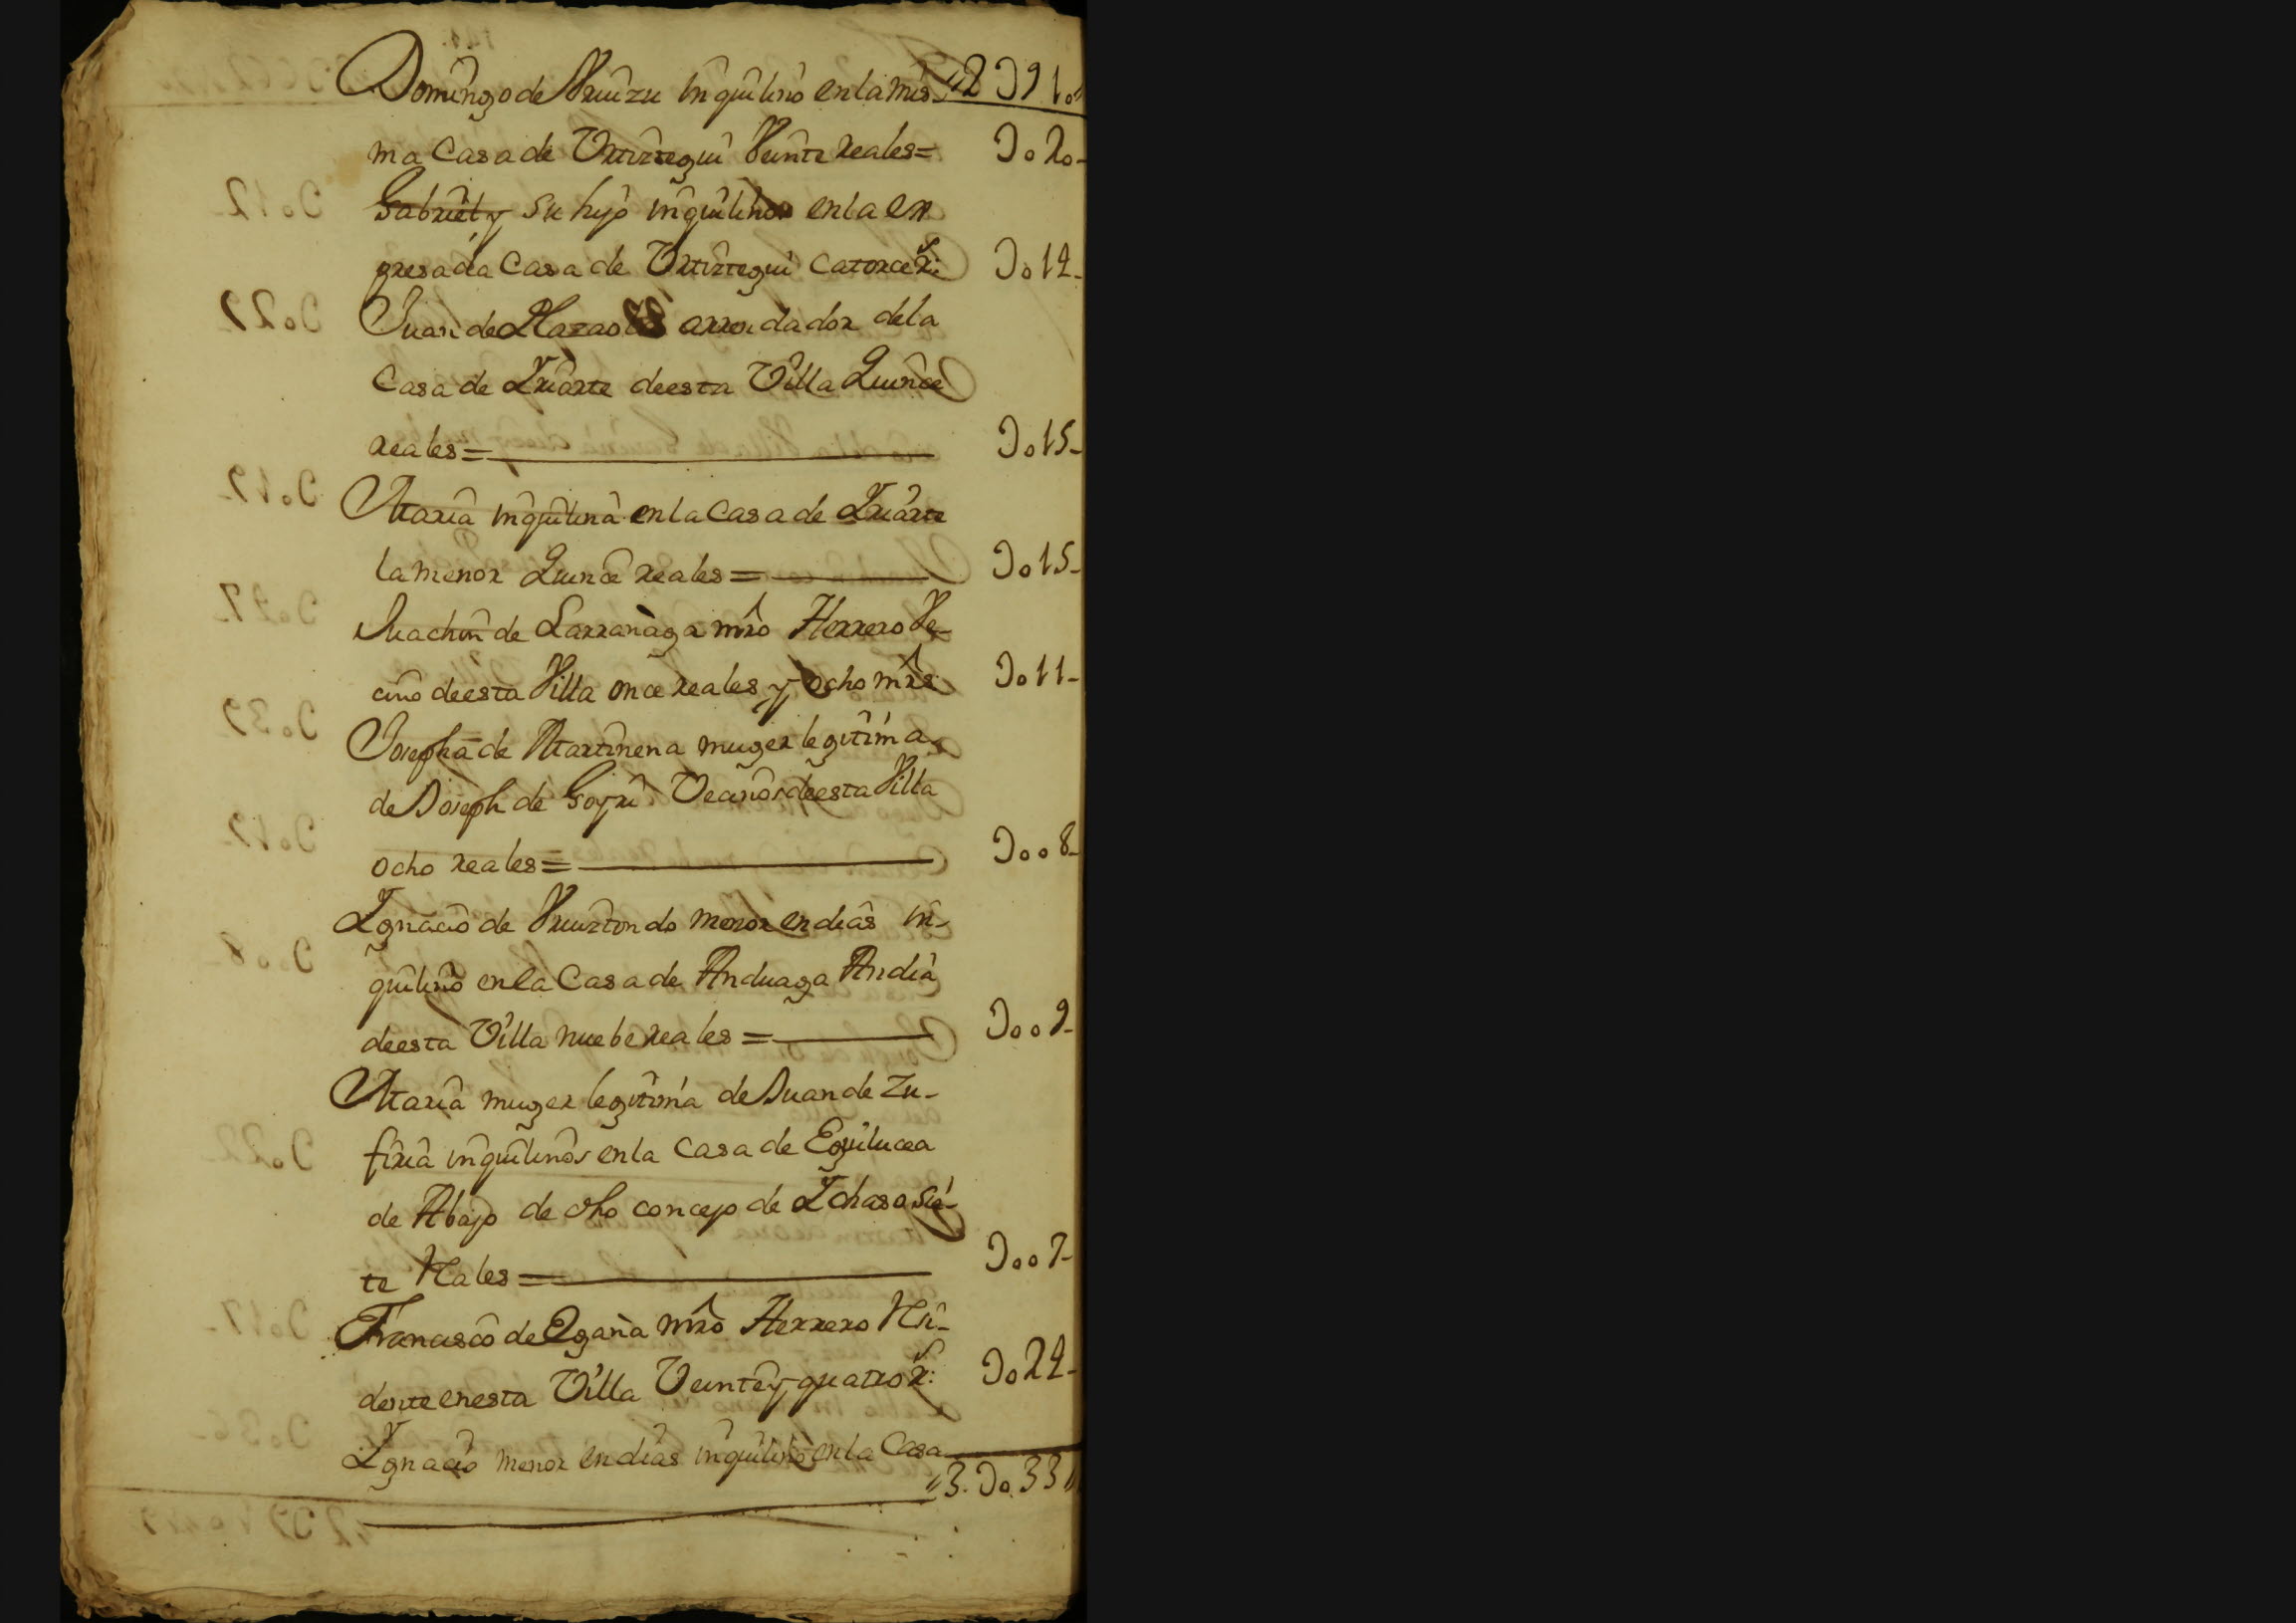 Domingo de Vruizu inquilino en la mis- "2D910"
ma Casa de Vrtiztegui Veinte reales= Do20-
Gabriel y su hijo inquilinos en la ex
presada Casa de Vrtiztegui catorce rs: Do14-
Juan de Plazaola arrendador de la
Casa de Yriarte de esta Villa Quince
reales= Do15-
Maria inquilina en la Casa de Yriarte
la menor Quince reales= Do15-
Juachin de Larrañaga mro Herrero Ve-
cino de esta Villa once reales y ocho mrs Do11-
Josepha de Martinena muger legitima
de Joseph de Goyri Vecinos de esta Villa
ocho reales= Doo8-
Ygnacio de Vruiztondo menor en dias in-
quilino en la Casa de Anduaga Andia
de esta Villa nuebe reales= Doo9-
Maria muger legitima de Juan de Zu-
firia inquilinos en la Casa de Eguilucea
de Abajo de dho concejo de Ychaso sie-
te Reales= Doo7-
Francisco de Egaña mro Herrero Rsi-
dente en esta Villa Veinte y quatro rs: Do24-
Ygnacio menor en dias inquilino en la Casa
"3.Do.33"